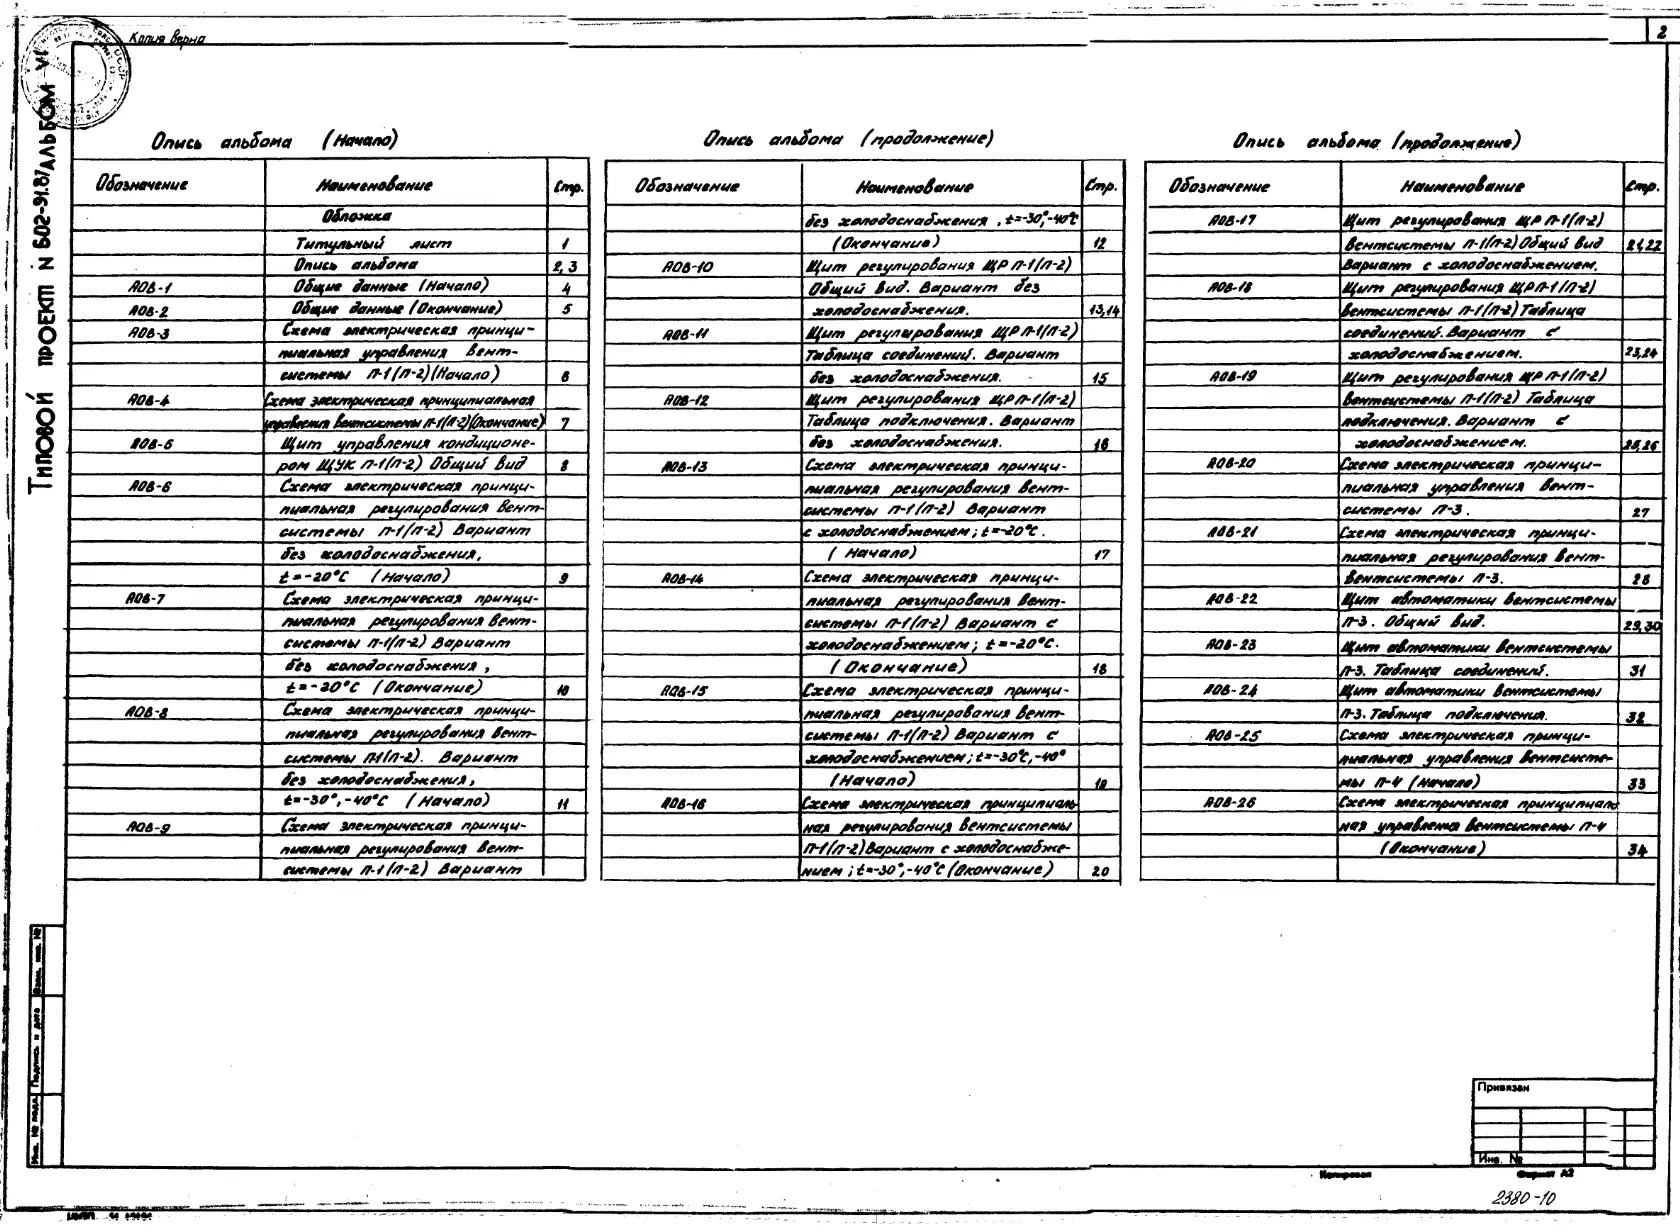 Копия верна
2
Типовой проект N 602-91.87 Альбом VI
Опись альбома (Начало)
Обозначение Наименование Стр.
Обложка
Титульный лист 1
Опись альбома 2, 3
АОВ-1 Общие данные (Начало) 4
АОВ-2 Общие данные (Окончание) 5
АОВ-3 Схема электрическая принци-
пиальная управления вент-
системы П-1(П-2)(Начало) 6
АОВ-4 Схема электрическая принципиальная
управления вентсистемы П-1(П-2)(Окончание) 7
АОВ-5 Щит управления кондиционе-
ром ЩУК П-1(П-2) Общий вид 8
АОВ-6 Схема электрическая принци-
пиальная регулирования вент-
системы П-1(П-2) Вариант
без холодоснабжения,
t=-20°С (Начало) 9
АОВ-7 Схема электрическая принци-
пиальная регулирования вент-
системы П-1(П-2) Вариант
без холодоснабжения,
t=-20°С (Окончание) 10
АОВ-8 Схема электрическая принци-
пиальная регулирования вент-
системы П-1(П-2). Вариант
без холодоснабжения,
t=-30°,-40°С (Начало) 11
АОВ-9 Схема электрическая принци-
пиальная регулирования вент-
системы П-1(П-2) Вариант
Опись альбома (продолжение)
Обозначение Наименование Стр.
без холодоснабжения, t=-30°,-40°С
(Окончание) 12
АОВ-10 Щит регулирования ЩР П-1(П-2)
Общий вид. Вариант без
холодоснабжения. 13,14
АОВ-11 Щит регулирования ЩР П-1(П-2)
Таблица соединений. Вариант
без холодоснабжения. 15
АОВ-12 Щит регулирования ЩР П-1(П-2)
Таблица подключения. Вариант
без холодоснабжения. 16
АОВ-13 Схема электрическая принци-
пиальная регулирования вент-
системы П-1(П-2) Вариант
с холодоснабжением; t=-20°С.
(Начало) 17
АОВ-14 Схема электрическая принци-
пиальная регулирования вент-
системы П-1(П-2) Вариант с
холодоснабжением; t=-20°С.
(Окончание) 18
АОВ-15 Схема электрическая принци-
пиальная регулирования вент-
системы П-1(П-2) Вариант с
холодоснабжением; t=-30°С,-40°
(Начало) 19
АОВ-16 Схема электрическая принципиаль-
ная регулирования вентсистемы
П-1(П-2) Вариант с холодоснабже-
нием; t=-30°,-40°С (Окончание) 20
Опись альбома (продолжение)
Обозначение Наименование Стр.
АОВ-17 Щит регулирования ЩР П-1(П-2)
вентсистемы П-1(П-2) Общий вид 21,22
Вариант с холодоснабжением.
АОВ-18 Щит регулирования ЩР П-1(П-2)
вентсистемы П-1(П-2) Таблица
соединений. Вариант с
холодоснабжением. 23,24
АОВ-19 Щит регулирования ЩР П-1(П-2)
вентсистемы П-1(П-2) Таблица
подключения. Вариант с
холодоснабжением. 25,26
АОВ-20 Схема электрическая принци-
пиальная управления вент-
системы П-3. 27
АОВ-21 Схема электрическая принци-
пиальная регулирования вент-
вентсистемы П-3. 28
АОВ-22 Щит автоматики вентсистемы
П-3. Общий вид. 29,30
АОВ-23 Щит автоматики вентсистемы
П-3. Таблица соединений. 31
АОВ-24 Щит автоматики вентсистемы
П-3. Таблица подключения. 32
АОВ-25 Схема электрическая принци-
пиальная управления вентсисте-
мы П-4 (Начало) 33
АОВ-26 Схема электрическая принципиаль
ная управления вентсистемы П-4
(Окончание) 34
Инв. № подл. Подпись и дата Взам. инв. №
Привязан
Инв. №
Копировал Формат А2
2380-10